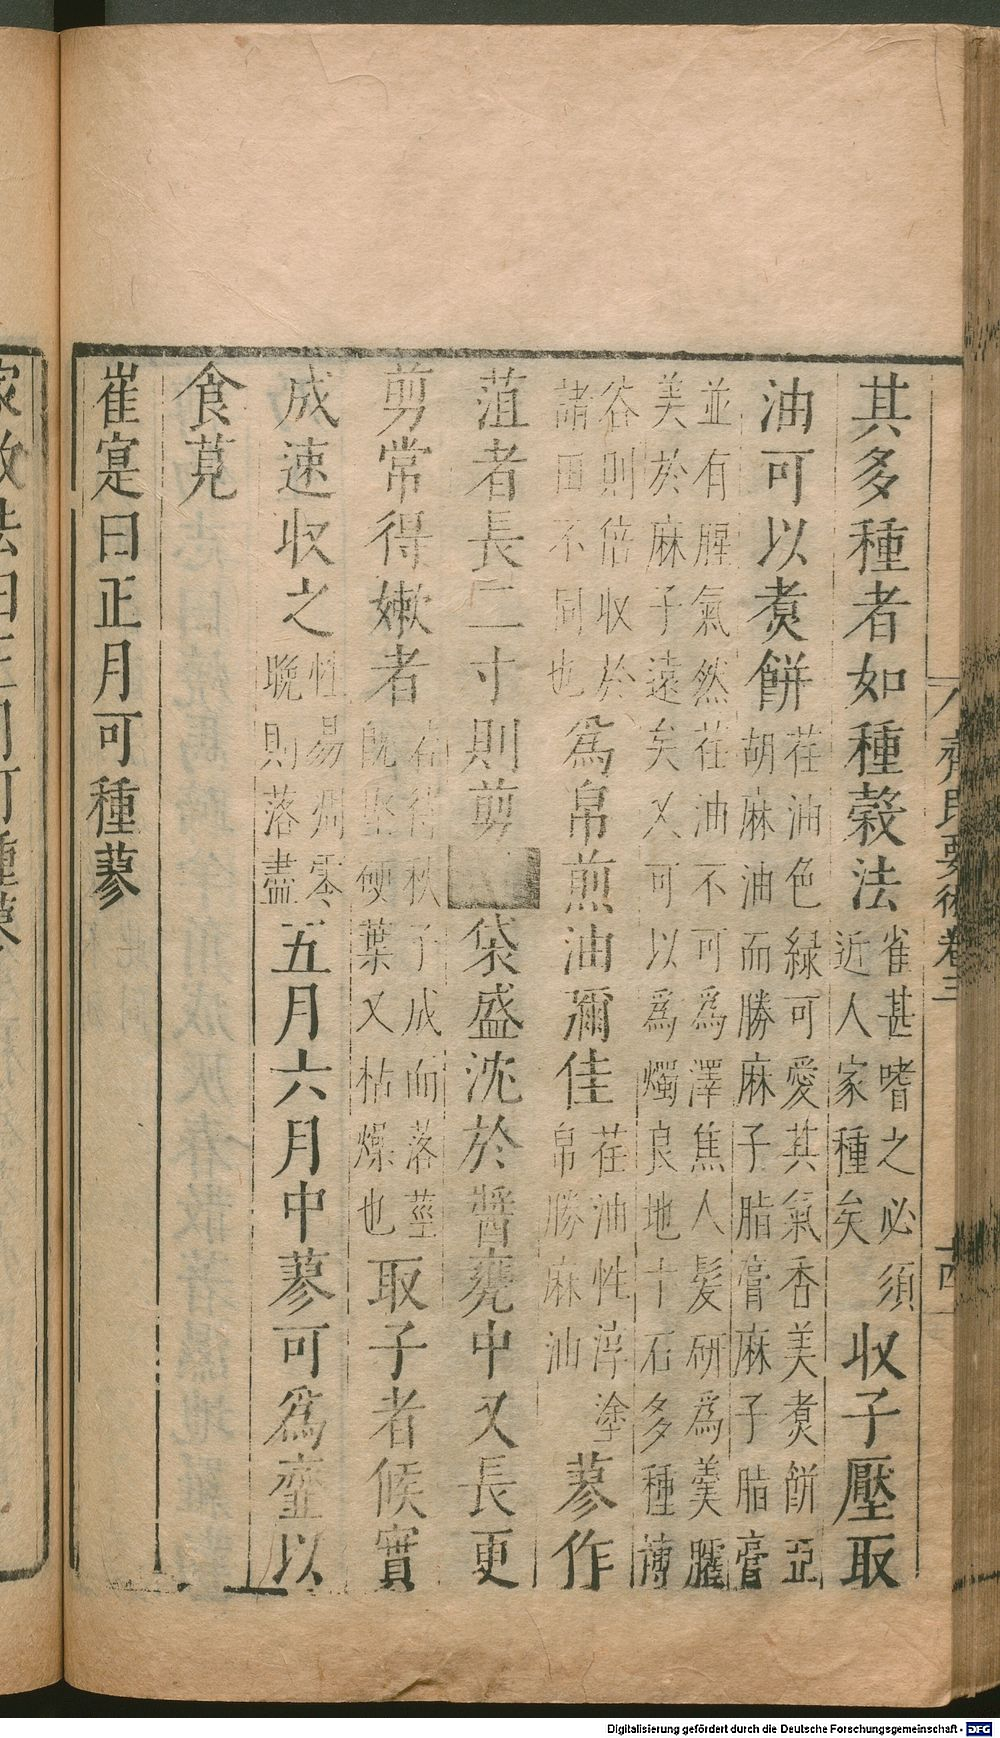 其多種者如種穀法雀甚嗜之必須近人家種矣收子壓取
油可以煑餅荏油色綠可愛其氣香美煑餅亞胡麻油而勝麻子脂膏麻子脂膏
並有腥氣然荏油不可爲澤焦人髪研爲羹臛美於麻子遠矣又可以爲燭良地十石多種博
谷則倍收於諸田不同也爲帛煎油彌佳荏油性淳塗帛勝麻油蓼作
菹者長二寸則剪袋盛沈於醬甕中又長更
剪常得嫩者若待秋子成而落莖既堅硬葉又枯燥也取子者候實
成速收之性易凋零晩則落盡五月六月中蓼可爲虀以
食莧
崔寔曰正月可種蓼
齊民要術卷三
十四
家政法曰三月可種蘘
Digitalisierung gefördert durch die Deutsche Forschungsgemeinschaft - DFG